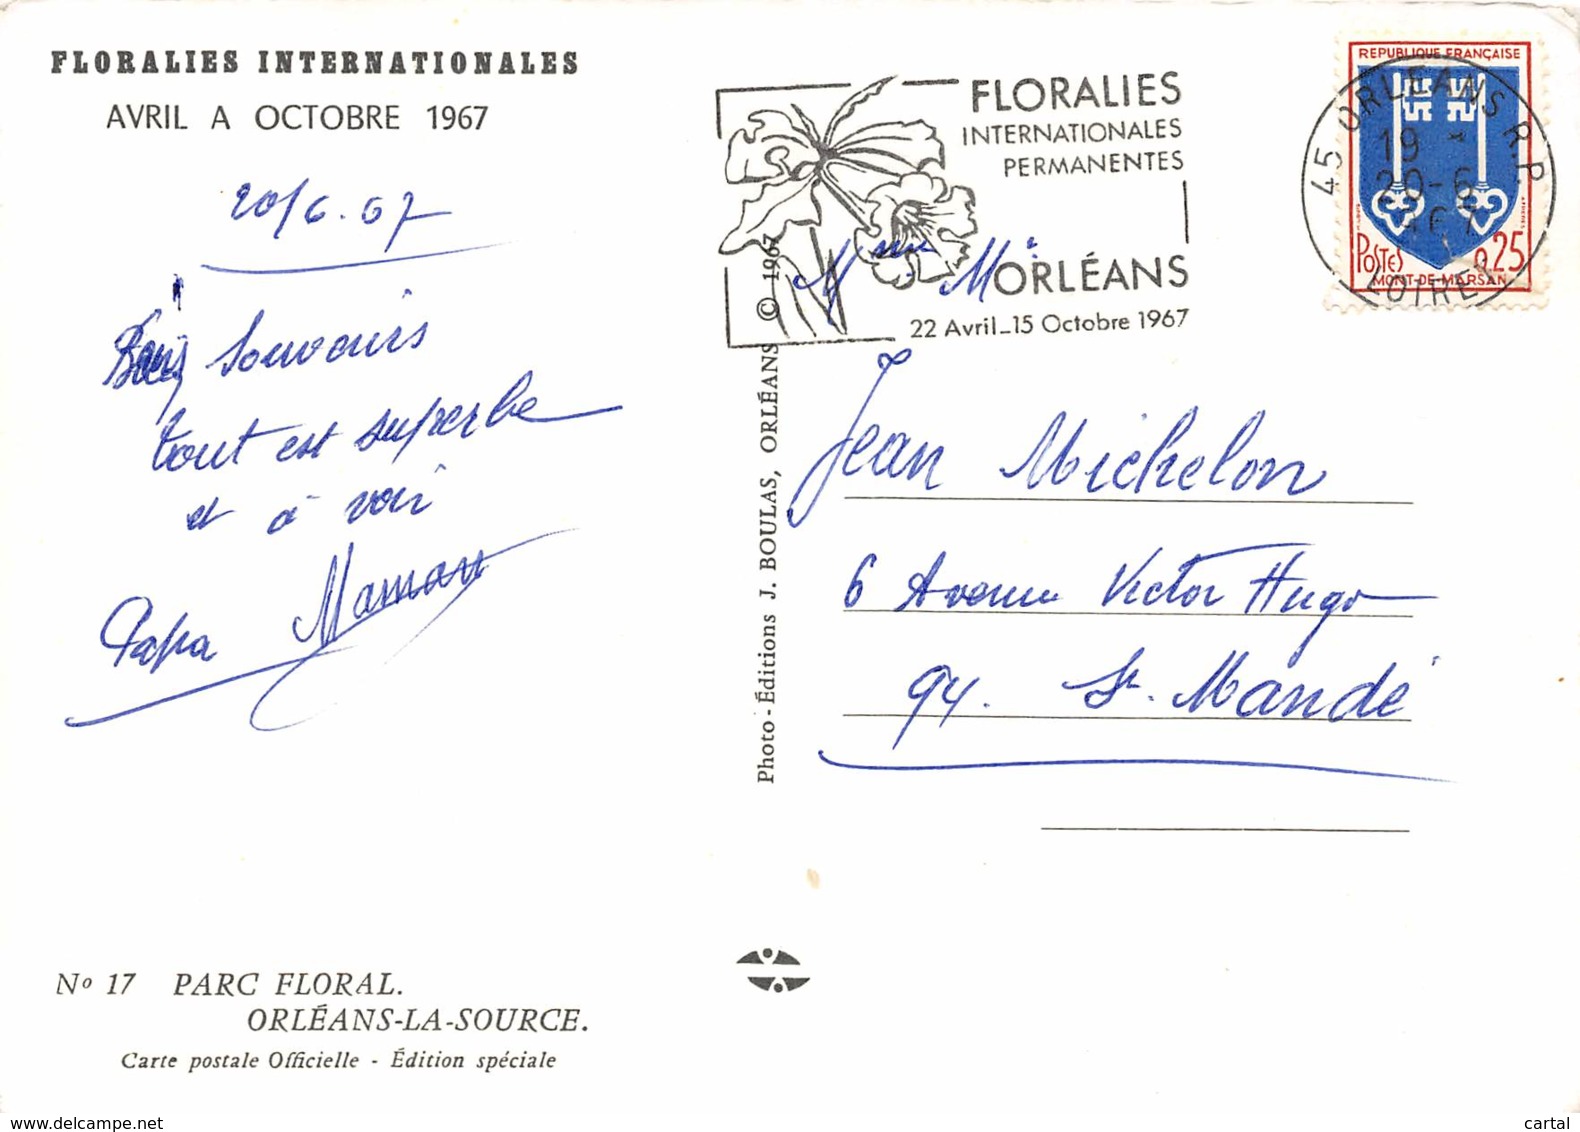 FLORALIES INTERNATIONALES
AVRIL A OCTOBRE 1967
20/6.67
Bons Souvenirs
tout est superbe
et à voir
Papa Maman
No 17 PARC FLORAL.
ORLÉANS-LA-SOURCE.
Carte postale Officielle - Édition spéciale
Photo-Éditions J. BOULAS, ORLÉANS © 1967
FLORALIES
INTERNATIONALES
PERMANENTES
ORLÉANS
22 Avril_15 Octobre 1967
REPUBLIQUE FRANÇAISE
POSTES 0,25
MONT-DE-MARSAN
45 ORLEANS R.P.
19
20-6
1967
LOIRET
Mme Mr
Jean Michelon
6 Avenue Victor Hugo
94. St. Mandé
www.delcampe.net
cartal